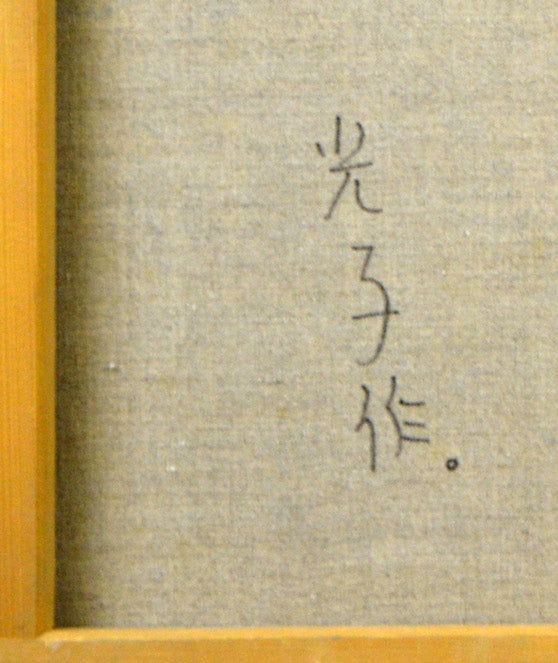 光子作。